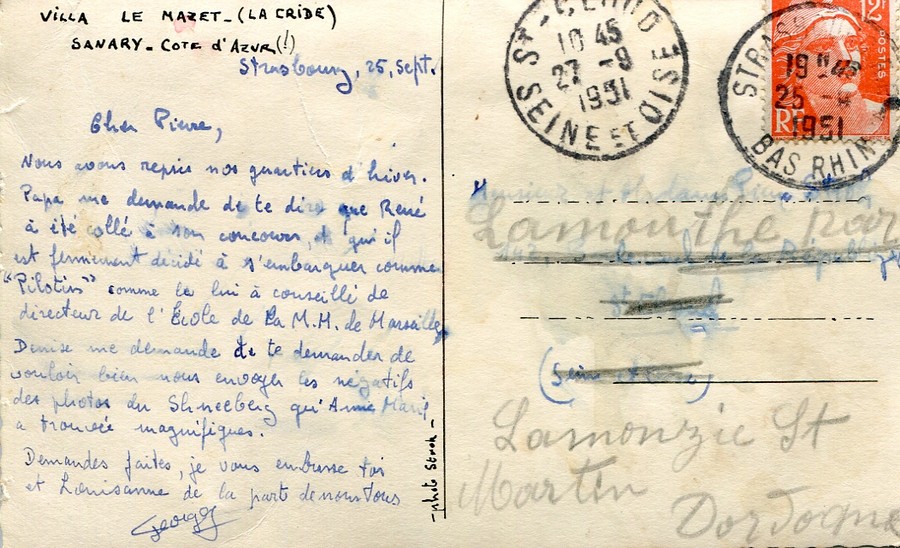 VILLA LE MAZET - (LA CRIDE)
SANARY - COTE d'AZUR (!)
Strasbourg, 25, Sept.
Cher Pierre,
Nous avons repris nos quartiers d'hiver.
Papa me demande de te dire que René
à été collé à son concours, et qu'il
est fermement décidé à s'embarquer comme
"Pilotin" comme le lui à conseillé le
directeur de l'École de la M.M. de Marseille
Denise me demande de te demander de
vouloir bien nous envoyer les négatifs
des photos du Shneeberg qu'Anne Marie
a trouvée magnifiques.
Demandes faites, je vous embrasse toi
et Louisanne de la part de nous tous
Georges
- photo Stroh -
ST-CLOUD
10 45
27 -9
1951
SEINE ET OISE
STRASBOURG
19 45
25 -9
1951
BAS RHIN
12F
POSTES
RF
Monsieur et Madame
Lamonthe par
de la République
St Cloud
(Seine et Oise)
Lamonzie St
Martin
Dordogne